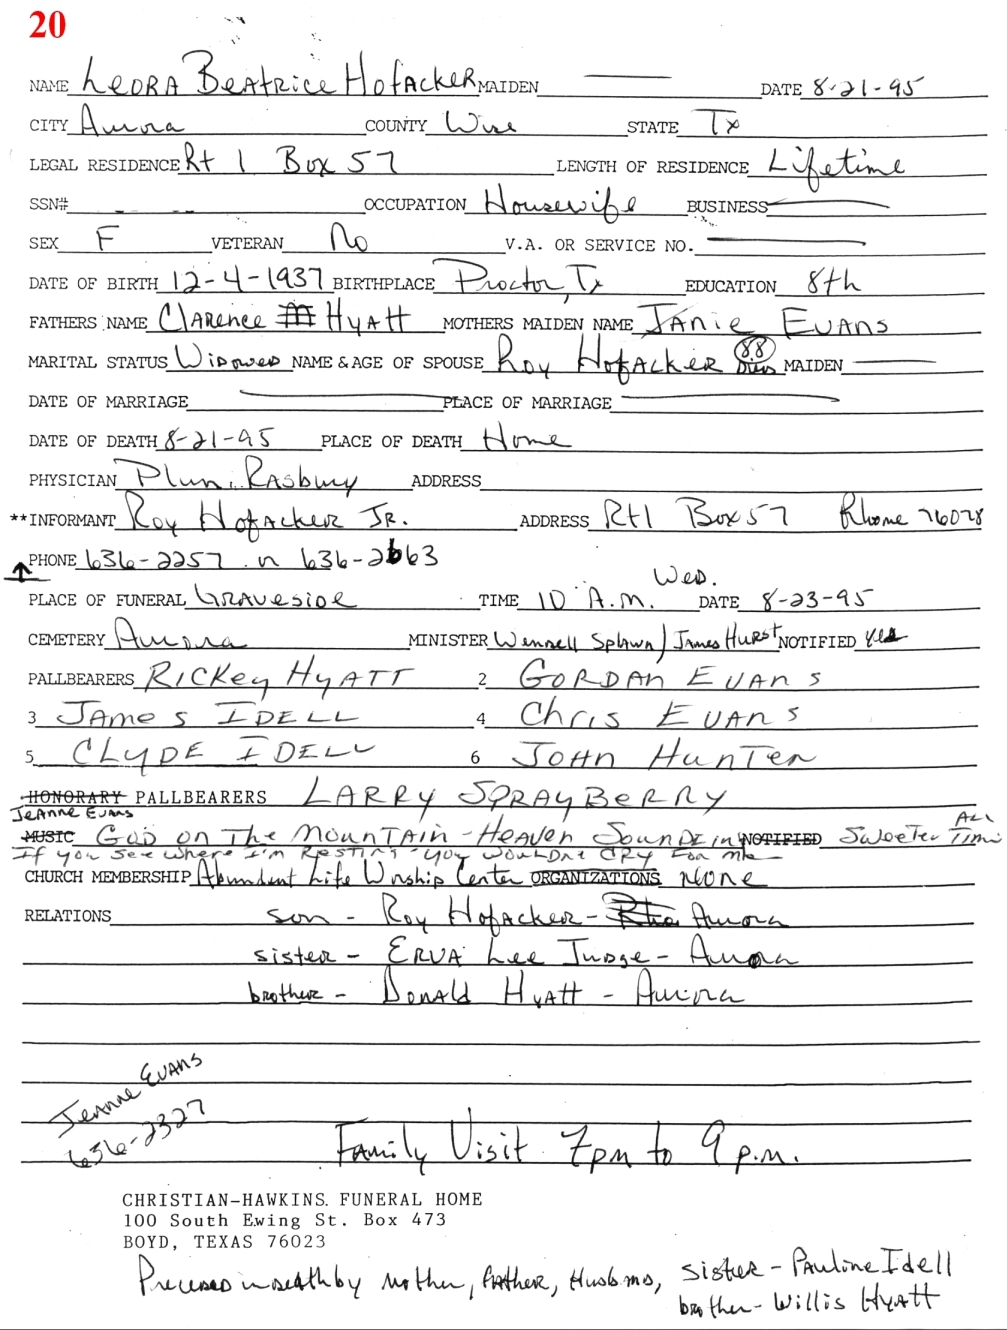 20
NAME Leora Beatrice Hofacker MAIDEN DATE 8-21-95
CITY Aurora COUNTY Wise STATE Tx
LEGAL RESIDENCE Rt 1 Box 57 LENGTH OF RESIDENCE Lifetime
SSN# OCCUPATION Housewife BUSINESS
SEX F VETERAN No V.A. OR SERVICE NO.
DATE OF BIRTH 12-4-1937 BIRTHPLACE Proctor, Tx EDUCATION 8th
FATHERS NAME Clarence M Hyatt MOTHERS MAIDEN NAME Janie Evans
MARITAL STATUS Widowed NAME & AGE OF SPOUSE Roy Hofacker 88 Dies MAIDEN
DATE OF MARRIAGE PLACE OF MARRIAGE
DATE OF DEATH 8-21-95 PLACE OF DEATH Home
PHYSICIAN Rasbury ADDRESS
**INFORMANT Roy Hofacker Jr. ADDRESS Rt 1 Box 57 Rhome 76078
PHONE 636-2257 or 636-2663
Wed.
PLACE OF FUNERAL Graveside TIME 10 A.M. DATE 8-23-95
CEMETERY Aurora MINISTER Wendell Splawn / James Hurst NOTIFIED yes
PALLBEARERS Rickey Hyatt 2 Gordan Evans
3 James Idell 4 Chris Evans
5 Clyde Idell 6 John Hunter
HONORARY PALLBEARERS Larry Sprayberry
Jeanne Evans
MUSIC God on The Mountain - Heaven Soundin NOTIFIED Sweeter All Time
If you see where I'm Resting you wouldnt cry for me
CHURCH MEMBERSHIP Abundent Life Worship Center ORGANIZATIONS None
RELATIONS son - Roy Hofacker - Aurora
sister - Erva Lee Judge - Aurora
brother - Donald Hyatt - Aurora
Jeanne Evans
636-2327
Family Visit 7pm to 9 p.m.
CHRISTIAN-HAWKINS FUNERAL HOME
100 South Ewing St. Box 473
BOYD, TEXAS 76023
Preceded in death by mother, father, Husband, sister - Pauline Idell
brother - Willis Hyatt